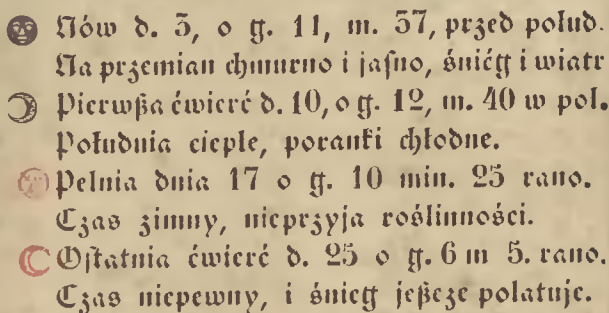 Nów d. 3, o g. 11, m. 37, przed połud.
Na przemian chmurno i jaſno, śniég i wiatr
Pierwßa ćwierć d. 10, o g. 12, m. 40 w poł.
Południa ciepłe, poranki chłodne.
Pełnia dnia 17 o g. 10 min. 25 rano.
Czas zimny, nieprzyja roślinności.
Oſtatnia ćwierć d. 25 o g. 6 m 5. rano.
Czas niepewny, i śnieg jeßcze polatuje.